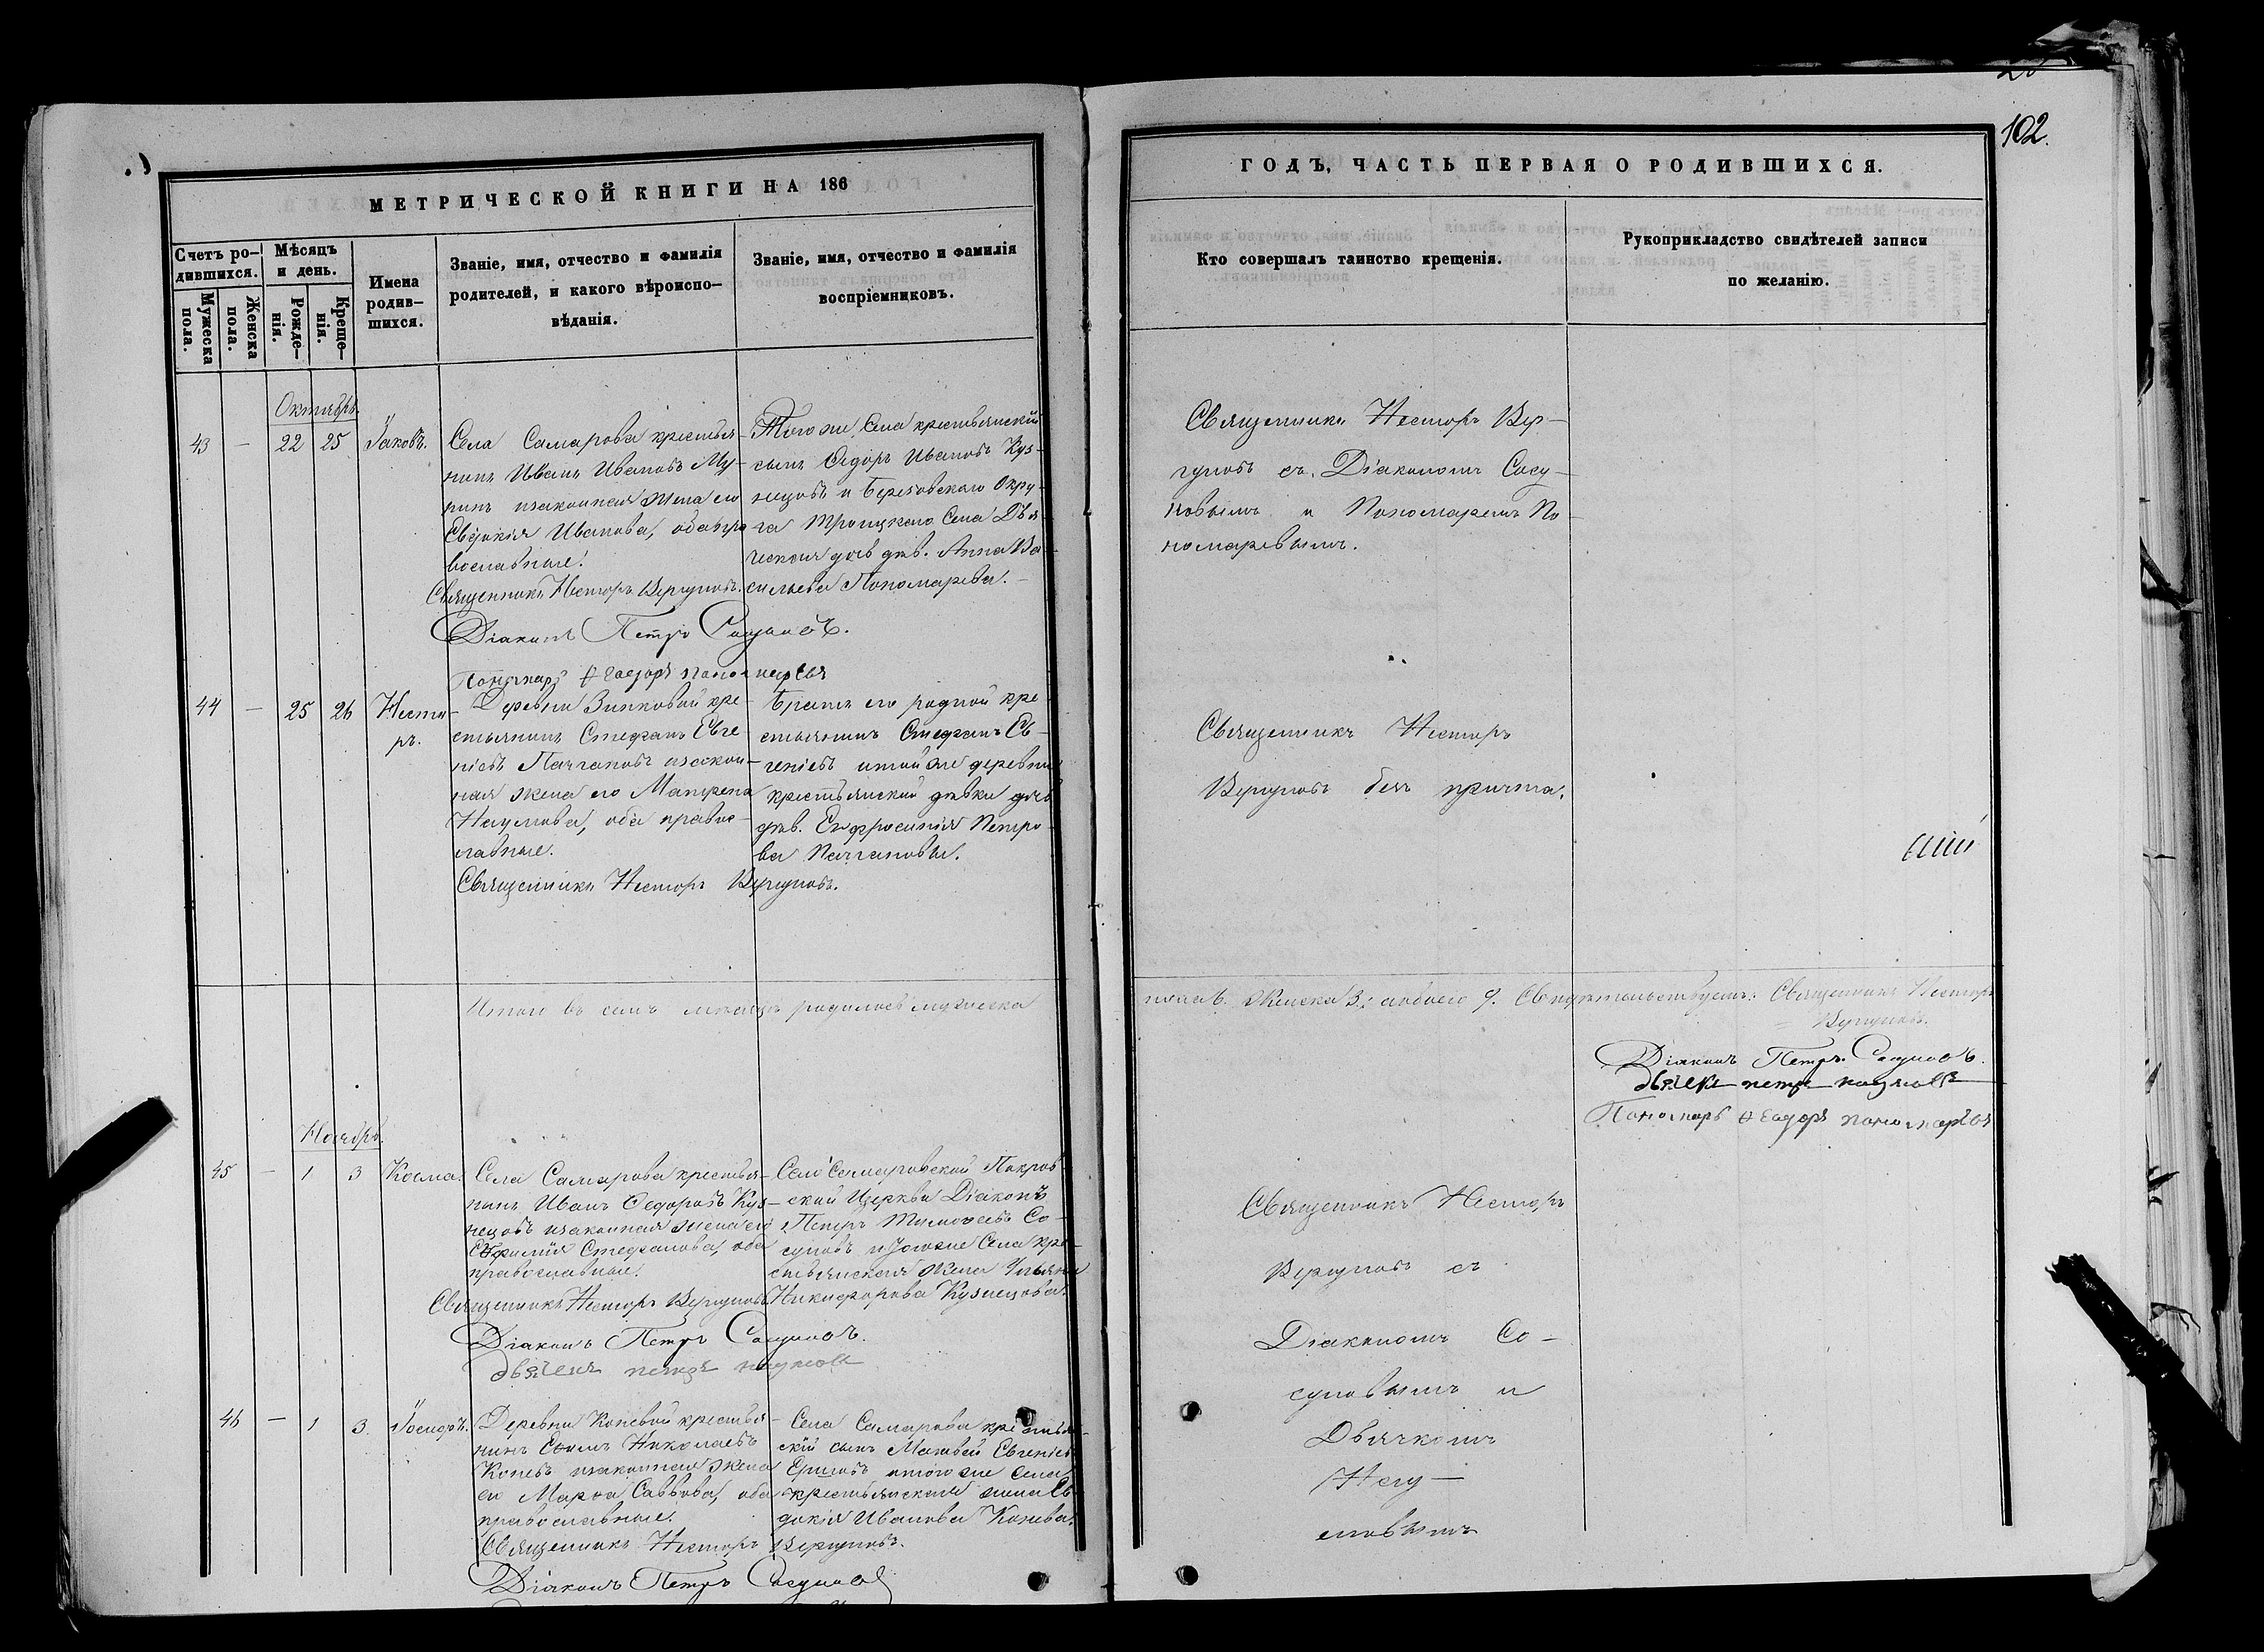 102.
МЕТРИЧЕСКОЙ КНИГИ НА 186
ГОДЪ, ЧАСТЬ ПЕРВАЯ О РОДИВШИХСЯ.
Счетъ ро-
дившихся.
Мужеска
пола.
Женска
пола.
Мѣсяцъ
и день.
Рожде-
нія.
Креще-
нія.
Имена
родив-
шихся.
Званіе, имя, отчество и фамилія
родителей, и какого вѣроиспо-
вѣданія.
Званіе, имя, отчество и фамилія
воспріемниковъ.
Кто совершалъ таинство крещенія.
Рукоприкладство свидѣтелей записи
по желанію.
Октябрь
43 — 22 25 Іаковъ.
Села Самарова крестья-
нинъ Иванъ Ивановъ Му-
ринъ изаконная жена его
Евдокія Иванова, оба пра
вославные.
Священникъ Несторъ Вергуновъ.
Діаконъ Петръ Сосуновъ.
Пономарь Ѳеодоръ пономаревъ
Того же Села крестьянскій
сынъ Ѳедоръ Ивановъ Куз-
нецовъ и Березовскаго Окру-
га Троицкаго Села Дья-
ческая дочь дѣв. Анна Ва-
сильева Пономарева.
Священникъ Несторъ Вер-
гуновъ съ Діакономъ Сосу-
новымъ и Пономаремъ По-
номаревымъ.
44 — 25 26 Несто-
ръ.
Деревни Зинковой кре-
стьянинъ Стефанъ Евге
ніевъ Пачгановъ изакон-
ная жена его Матрена
Наумова, оба правос-
лавные.
Священникъ Несторъ Вергуновъ.
Братъ его родной кре-
стьянинъ Стефанъ Ев-
геніевъ итой же деревни
крестьянской дѣвки дочь
дѣв. Евфросинія Петро-
ва Пачганова.
Священникъ Несторъ
Вергуновъ безъ причта.
Итого въ семъ мѣсяцѣ родилось мужеска
пола 6. Женска 3; обоего 9. Свидѣтельствуемъ: Священникъ Несторъ
Вергуновъ.
Діаконъ Петръ Сосуновъ.
дьячекъ петръ
Пономарь Ѳеодоръ пономаревъ
Ноябрь.
45 — 1 3 Косма.
Села Самарова крестья-
нинъ Иванъ Ѳедоровъ Куз-
нецовъ изаконная жена его
Евфимія Стефанова, оба
православные.
Священникъ Несторъ Вергуновъ
Діаконъ Петръ Сосуновъ.
дьячекъ петръ
Сей Самаровской Покров-
ской Церкви Діаконъ
Петръ Тимоѳеевъ Со-
суновъ и тогоже Села кре-
стьянская жена Ульяна
Никифорова Кузнецова.
Священникъ Несторъ
Вергуновъ съ
Діакономъ Со-
суновымъ и
Дьячкомъ
46 — 1 3. Іосифъ.
Деревни Коневой крестья-
нинъ Ефимъ Николаевъ
Коневъ изаконная жена
его Марѳа Саввова, оба
православные.
Священникъ Несторъ Вергуновъ.
Діаконъ Петръ Сосуновъ
Села Самарова крестьян-
скій сынъ Матвей Евгеніевъ
итого же Села
крестьянская жена Ев-
докія Иванова Конева.